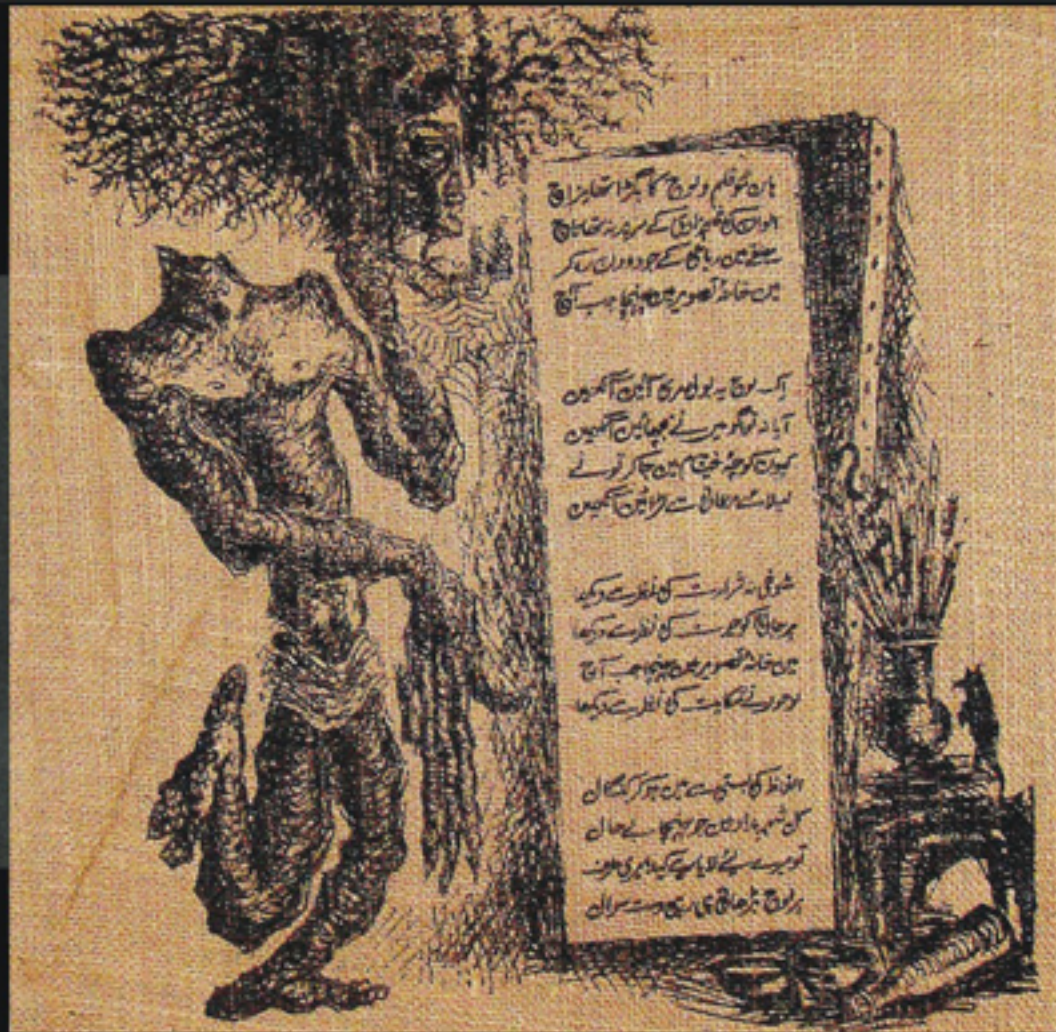 ہاں خود قلم و لوح کا بگڑا تھا مزاج
الوان کی شہزادی کے سر پر نہ تھا تاج
حلقے میں رباعی کے جو دو دن رہ کر
میں خانۂ تصویر میں پہنچا جب آج
اک لوح یہ بولی مری آئیں آنکھیں
آیا نہ تو گو میں نے بچھائیں آنکھیں
کیوں کوچۂ خیام میں جا کر تو نے
لیلائے معانی سے لڑائیں آنکھیں
شوخی نہ شرارت کی نظر سے دیکھا
ہرجائی کو حیرت کی نظر سے دیکھا
میں خانۂ تصویر میں پہنچا جب آج
لوحوں نے شکایت کی نظر سے دیکھا
الفاظ کی بستی سے میں ہو کر کنگال
کل شہر میں جو پہنچا بے حال
تو میرے لئے لایا ہے کیا میری طرف
ہر لوح بڑھاتی تھی دست سوال